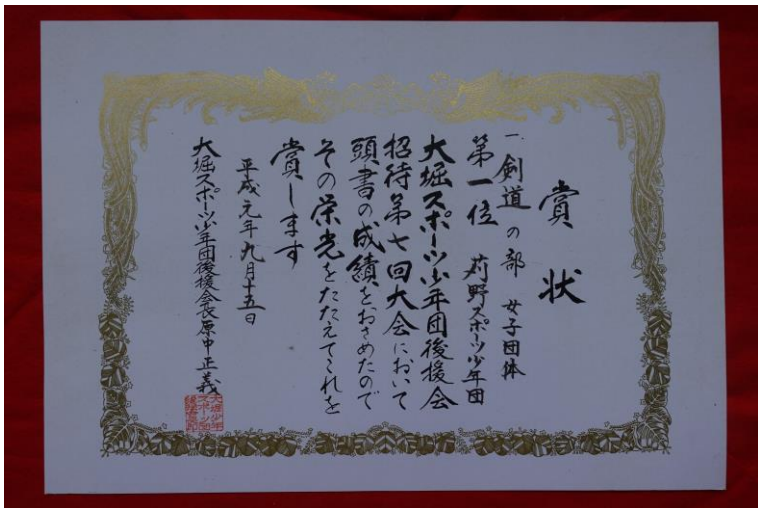 賞状
一、剣道の部 女子団体
第一位 苅野スポーツ少年団
大堀スポーツ少年団後援会
招待第七回大会において
頭書の成績をおさめたので
その栄光をたたえてこれを
賞します
平成元年九月十五日
大堀スポーツ少年団後援会長原中正義